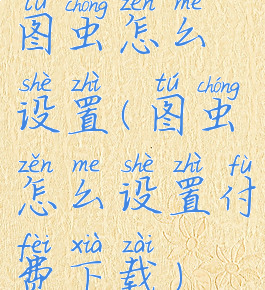 tú chóng zěn me
图虫怎么
shè zhì ( tú chóng
设置(图虫
zěn me shè zhì fù
怎么设置付
fèi xià zài
费下载)